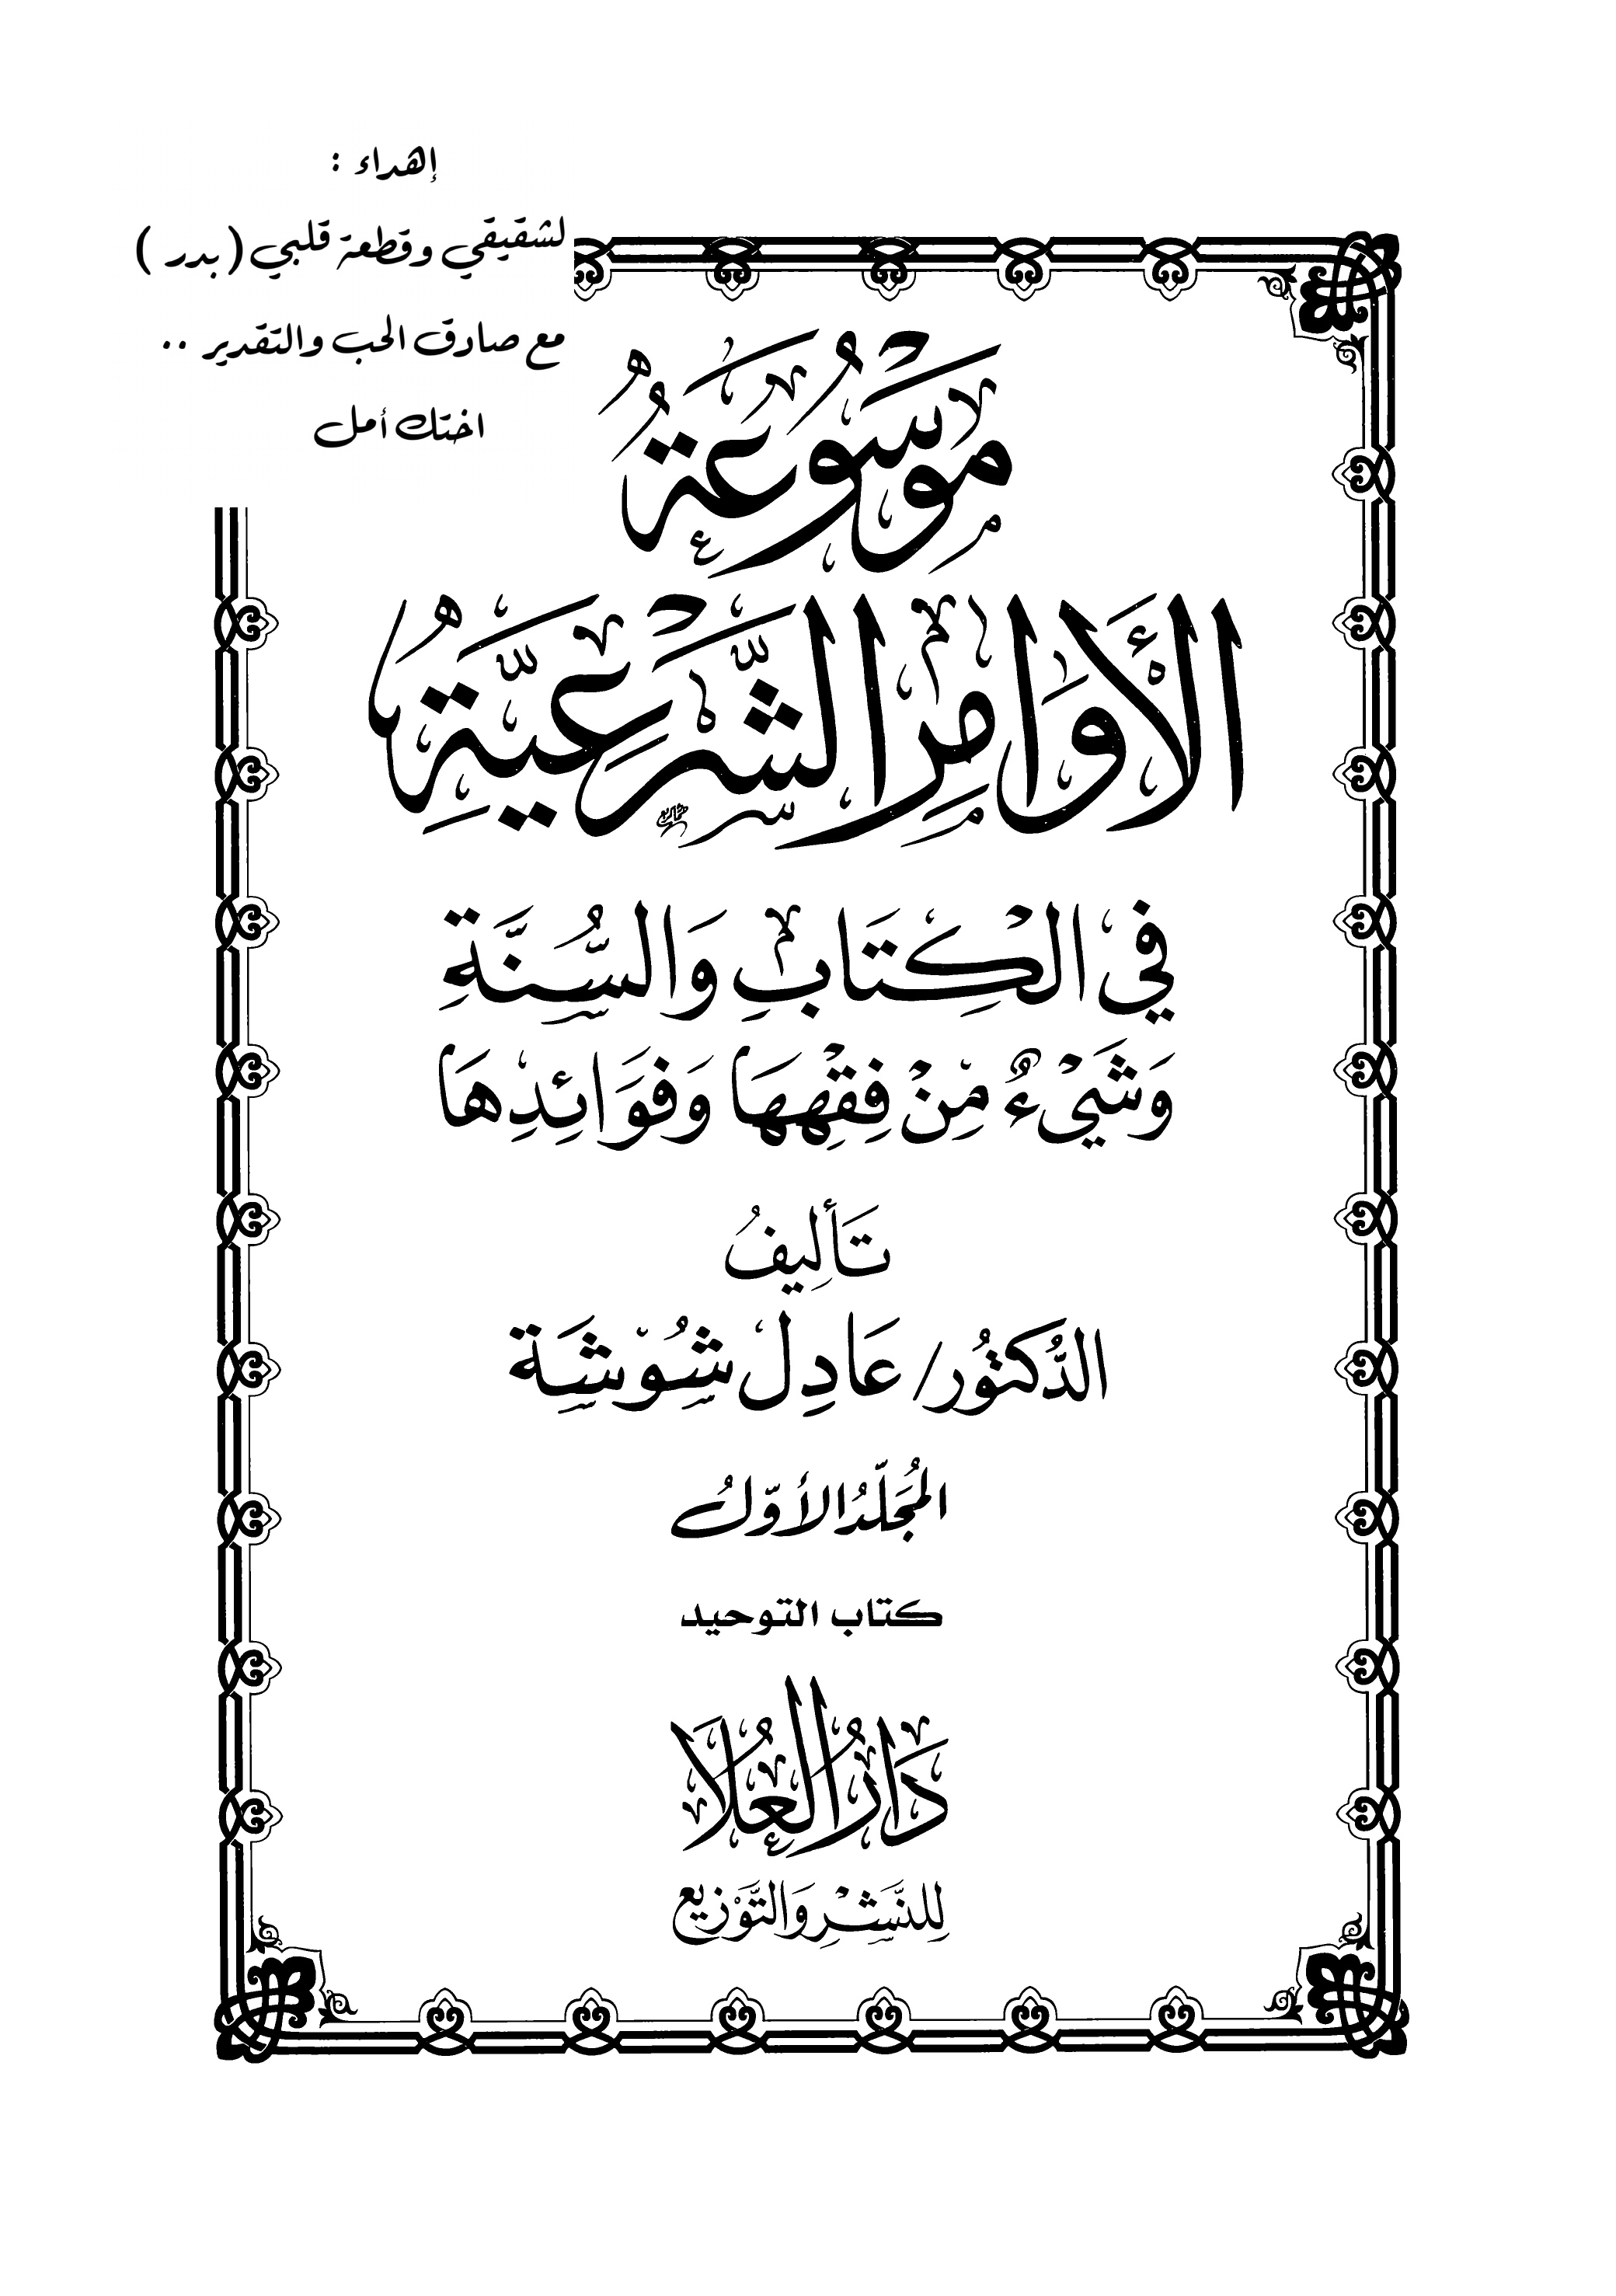 إهداء :
لشقيقي وقطعة قلبي (بدر )
مع صادق الحب والتقدير ..
اختك أمل
مَوْسُوعَةُ
الأَوَامِرِ الشَّرْعِيَّةِ
فِي الْكِتَابِ وَالسُّنَّةِ
وَشَيْءٌ مِّنْ فِقْهِهَا وَفَوَائِدِهَا
تَأْلِيفُ
الدُّكتُور/ عَادِل شُوشَة
المُجَلَّدُ الأَوَّلُ
كتاب التوحيد
دَارُ الْعُلَا
لِلنَّشْرِ وَالتَّوْزِيعِ